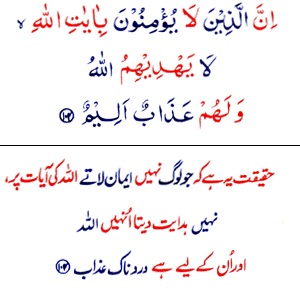 اِنَّ الَّذِيْنَ لَا يُؤْمِنُوْنَ بِاٰيٰتِ اللّٰهِ ۙ
لَا يَهْدِيْهِمُ اللّٰهُ
وَلَهُمْ عَذَابٌ اَلِيْمٌ ﴿۱۰۴﴾
حقیقت یہ ہے کہ جو لوگ نہیں ایمان لاتے اللہ کی آیات پر،
نہیں ہدایت دیتا اُنہیں اللہ
اور اُن کے لیے ہے دردناک عذاب ﴿۱۰۴﴾